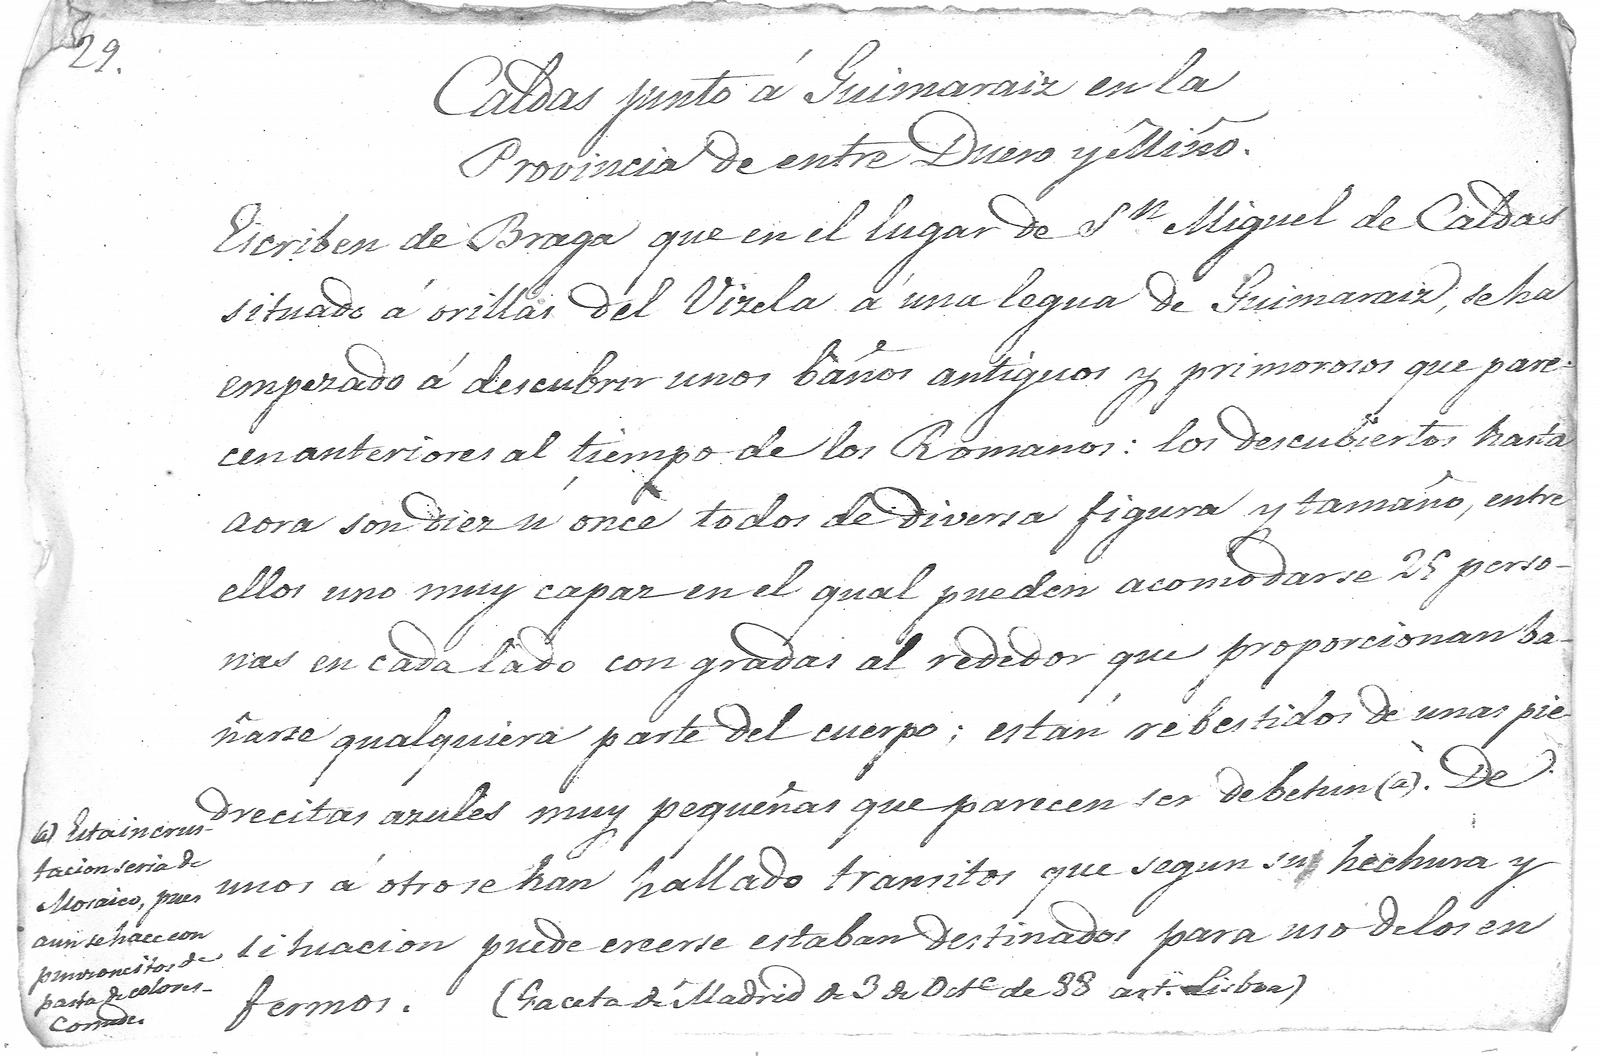 29.
Caldas junto á Guimaraiz en la
Provincia de entre Duero y Miño.
Escriben de Braga que en el lugar de Sn Miguel de Caldas
situado á orillas del Vizela á una legua de Guimaraiz, se ha
empezado á descubrir unos baños antiguos y primorosos que pare-
cen anteriores al tiempo de los Romanos: los descubiertos hasta
aora son diez ú once todos de diversa figura y tamaño, entre
ellos uno muy capaz en el qual pueden acomodarse 25 perso-
nas en cada lado con gradas al rededor que proporcionan ba-
ñarse qualquiera parte del cuerpo; están rebestidos de unas pie-
drecitas azules muy pequeñas que parecen ser de betun (a). De
unos á otro se han hallado transitos que segun su hechura y
situacion puede creerse estaban destinados para uso de los en
fermos. (Gaceta de Madrid de 3 de Octe de 88 art. Lisboa)
(a) Esta incrus-
tacion seria de
Mosaico, pues
aun se hace con
de
pasta de colores-
Cornide.